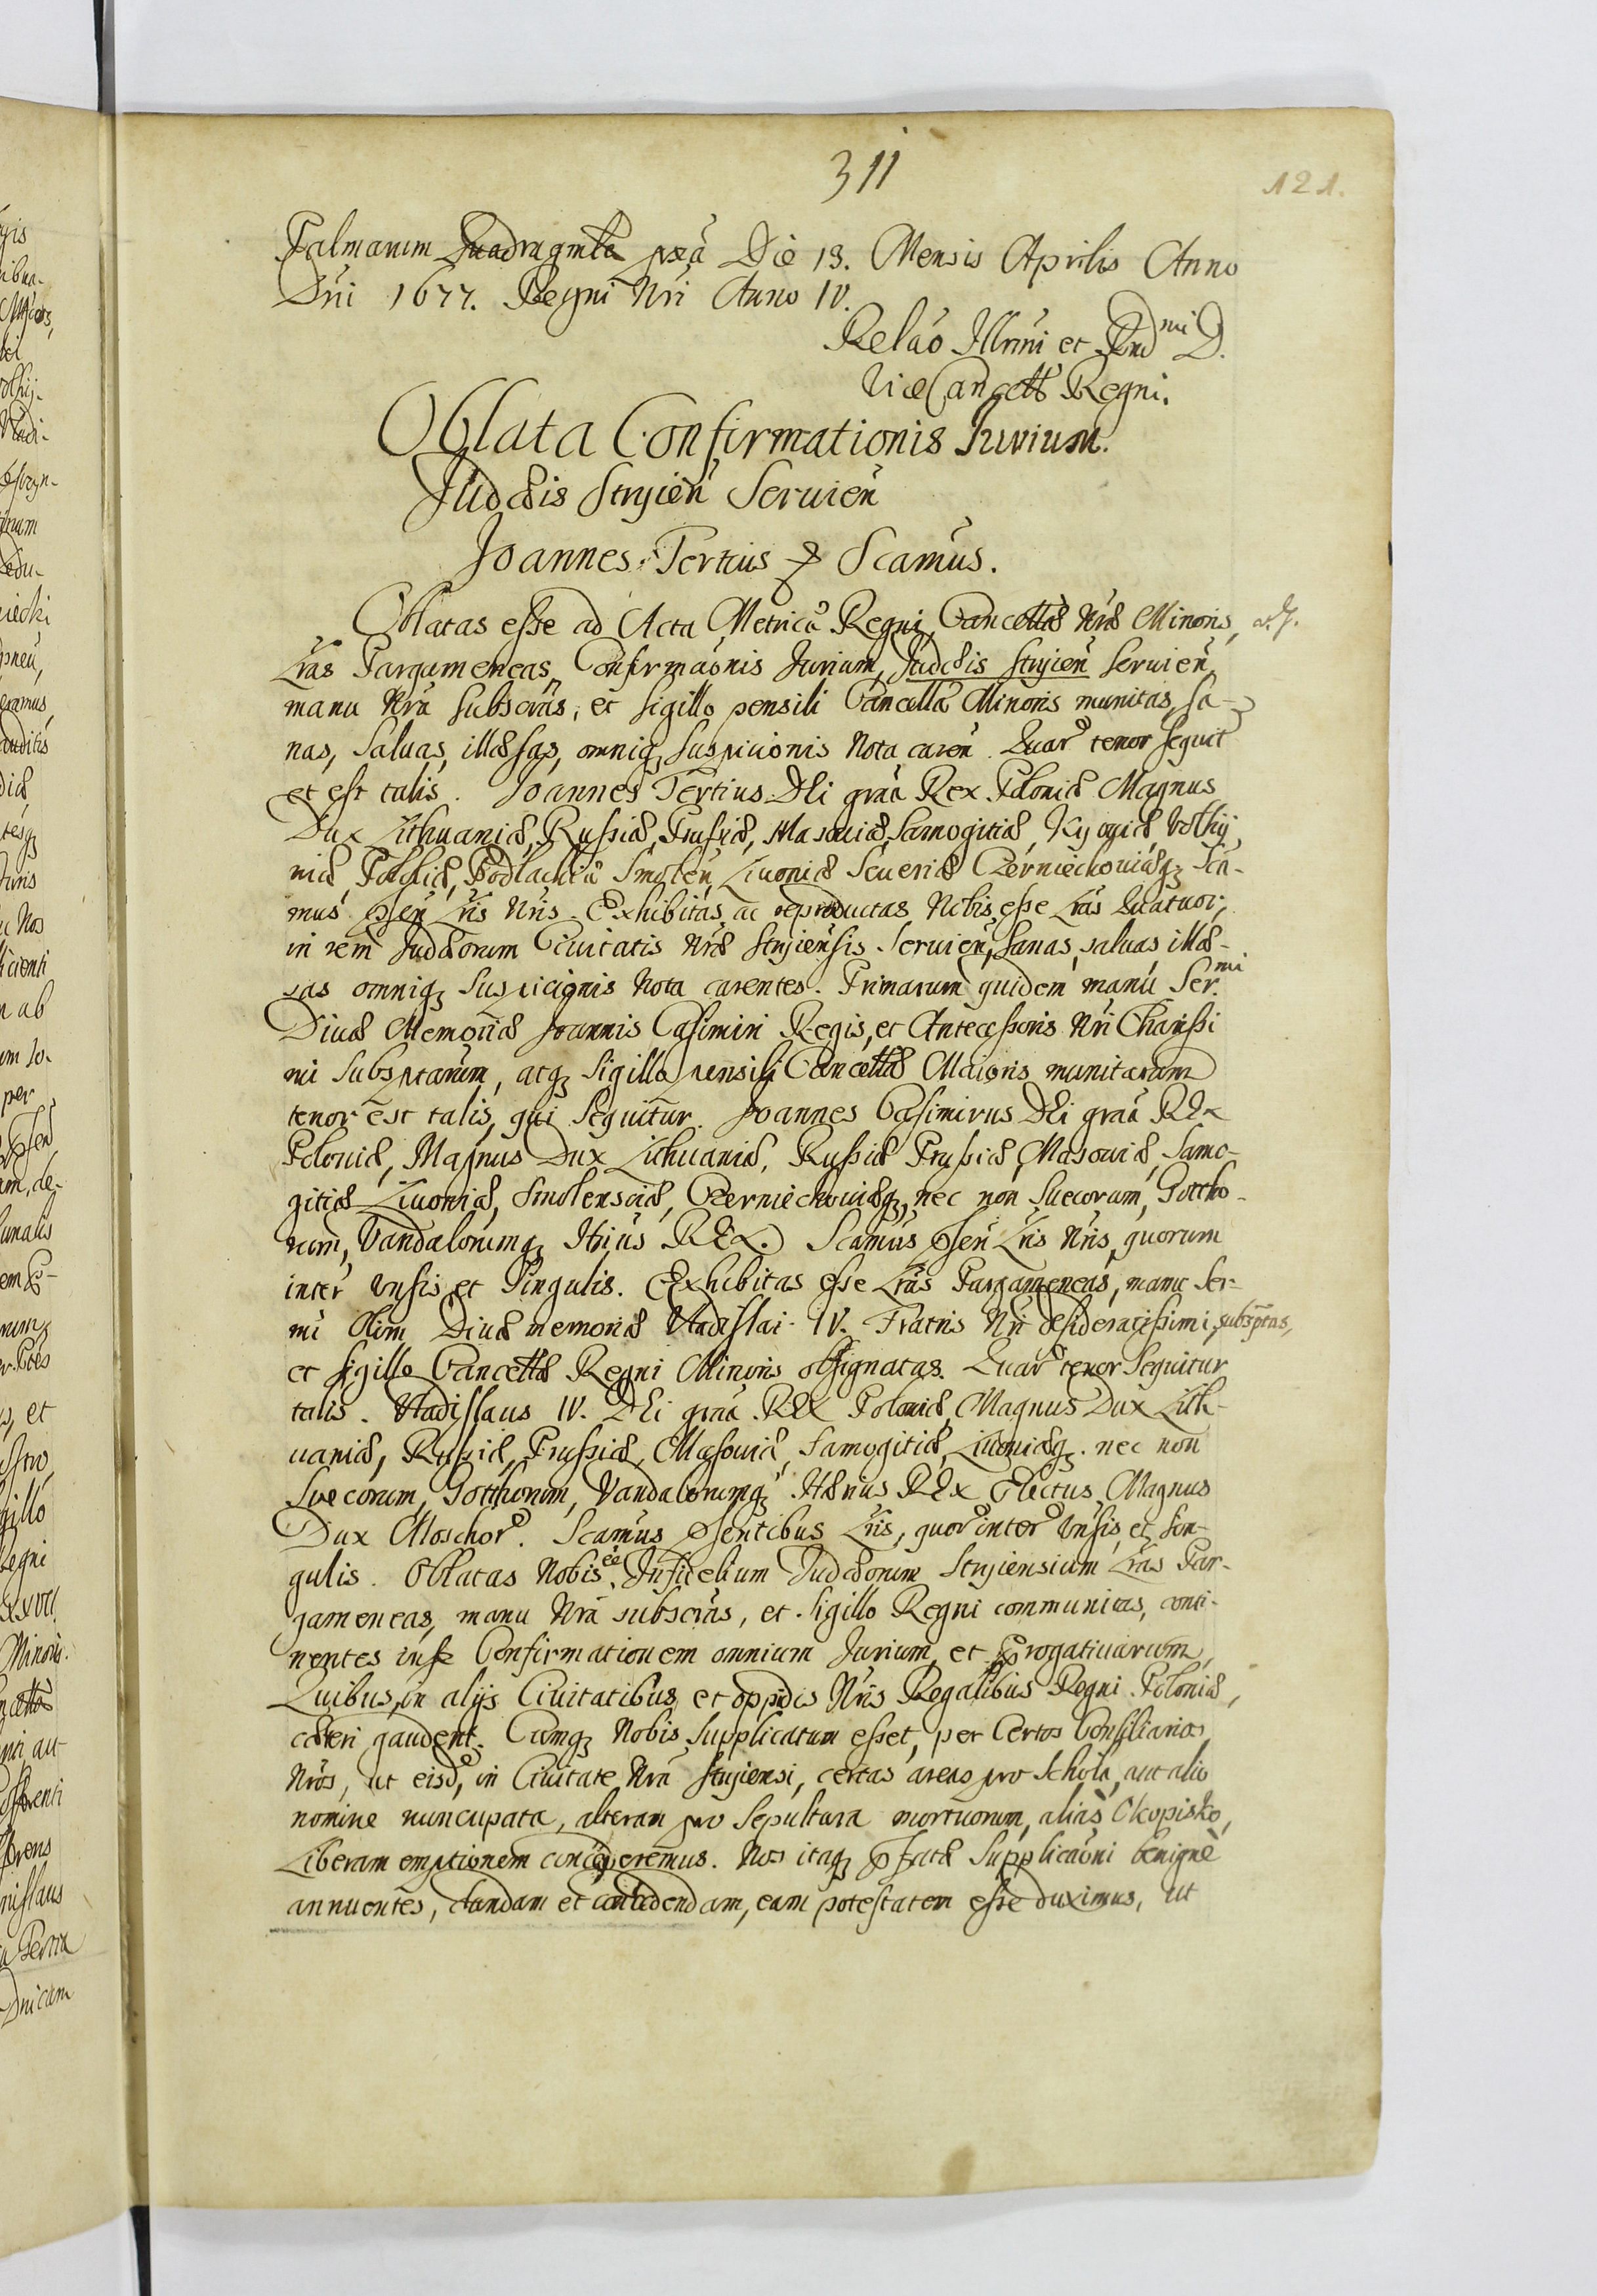 311
121.
Palmarum Quadragnta pxa Die 13. Mensis Aprilis Anno
Dni 1677. Regni Nri Anno IV.
Relao Illrmi et Rnd mi D.
ViceCancell Regni.
Oblata Confirmationis Iurium.
Judæis Stryien Servien
Joannes Tertius & Scamus.
Oblatas esse ad Acta Metrica Regni Cancellæ Nræ Minoris,
Lras Pargameneas, Confirmaonis Jurium, Judæis Stryien Servien,
manu Nra subscras, et sigillo pensili Cancella Minoris munitas, sa-
nas, salvas, illæsas, omniq suspicionis Nota caren. Quar tenor sequit
et est talis. Joannes Tertius DEi graa Rex Poloniæ Magnus
Dux Lithuaniæ, Russiæ, Prussiæ, Masoviæ, Samogitiæ, Kyoviæ, Volhij
niæ, Podoliæ, Podlachia Smolen, Livoniæ Seueriæ Czerniechoviæq Sca-
mus psen Lris Nris. Exhibitas ac reproductas Nobis esse Lras Quatuor,
in rem Judæorum Civitatis Nræ Stryiensis Servien, sanas, salvas, illæ-
sas omniq Suspicionis Nota carentes. Primarum quidem manu Ser. mi
Divæ Memoriæ Joannis Casimiri Regis, et Antecessoris Nri Charissi
mi Subsptarum, atq Sigillo pensili Cancellæ Maioris munitarum
tenor est talis, qui sequitur. Joannes Casimirus DEi graa REx
Poloniæ, Magnus Dux Lithuaniæ, Russiæ Prussiæ, Masoviæ, Samo-
gitiæ Livoniæ, Smolensciæ, Czerniechoviæq, nec non Suecorum, Gottho-
rum, Vandalorumq Hrius REx. Scamus psen Lris Nris, quorum
inter vnsis et singulis. Exhibitas esse Lras Pargameneas, manu Ser-
mi Olim Divæ memoriæ Vladislai IV. Fratris Nri desideratissimi subsptas,
et sigillo Cancellæ Regni Minoris obsignatas. Quar tenor sequitur
talis. Vladislaus IV. DEi graa REX Poloniæ, Magnus Dux Lith-
uaniæ, Russiæ, Prussiæ, Masoviæ, Samogitiæ, Livoniæq. nec non
Suecorum, Gotthorum, Vandalorumq Hærius REx Electus Magnus
Dux Moschor. Scamus psentibus Lris, quor inter vnsis, et sin-
gulis. Oblatas Nobis ee Infidelium Judæorum Stryiensium Lras Par-
gameneas, manu Nra subscras, et Sigillo Regni communitas, conti-
nentes in se Confirmationem omnium Jurium, et Prrogativarum,
Quibus, in alijs Civitatibus et oppidis Nris Regalibus Regni Poloniæ,
cæteri gaudent. Cumq Nobis supplicatum esset, per Certos Consiliarios
Nros, ut eisd, in Civitate Nra Stryiensi, certas areas pro Schola, aut alio
nomine nuncupata, alteram pro Sepultura mortuorum, alias Okopisko,
Liberam emptionem concederemus. Nos itaq pfatæ Supplicaoni benignè
annuentes, dandam et concedendam, eam potestatem esse duximus, ut